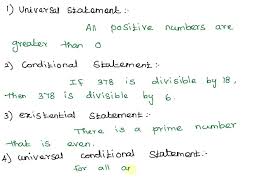 1) Universal Statement :-
All positive numbers are
greater than 0
2) Conditional Statement :-
If 378 is divisible by 18,
then 378 is divisible by 6.
3) existential Statement :-
There is a prime number
that is even.
4) universal conditional Statement :-
for all a